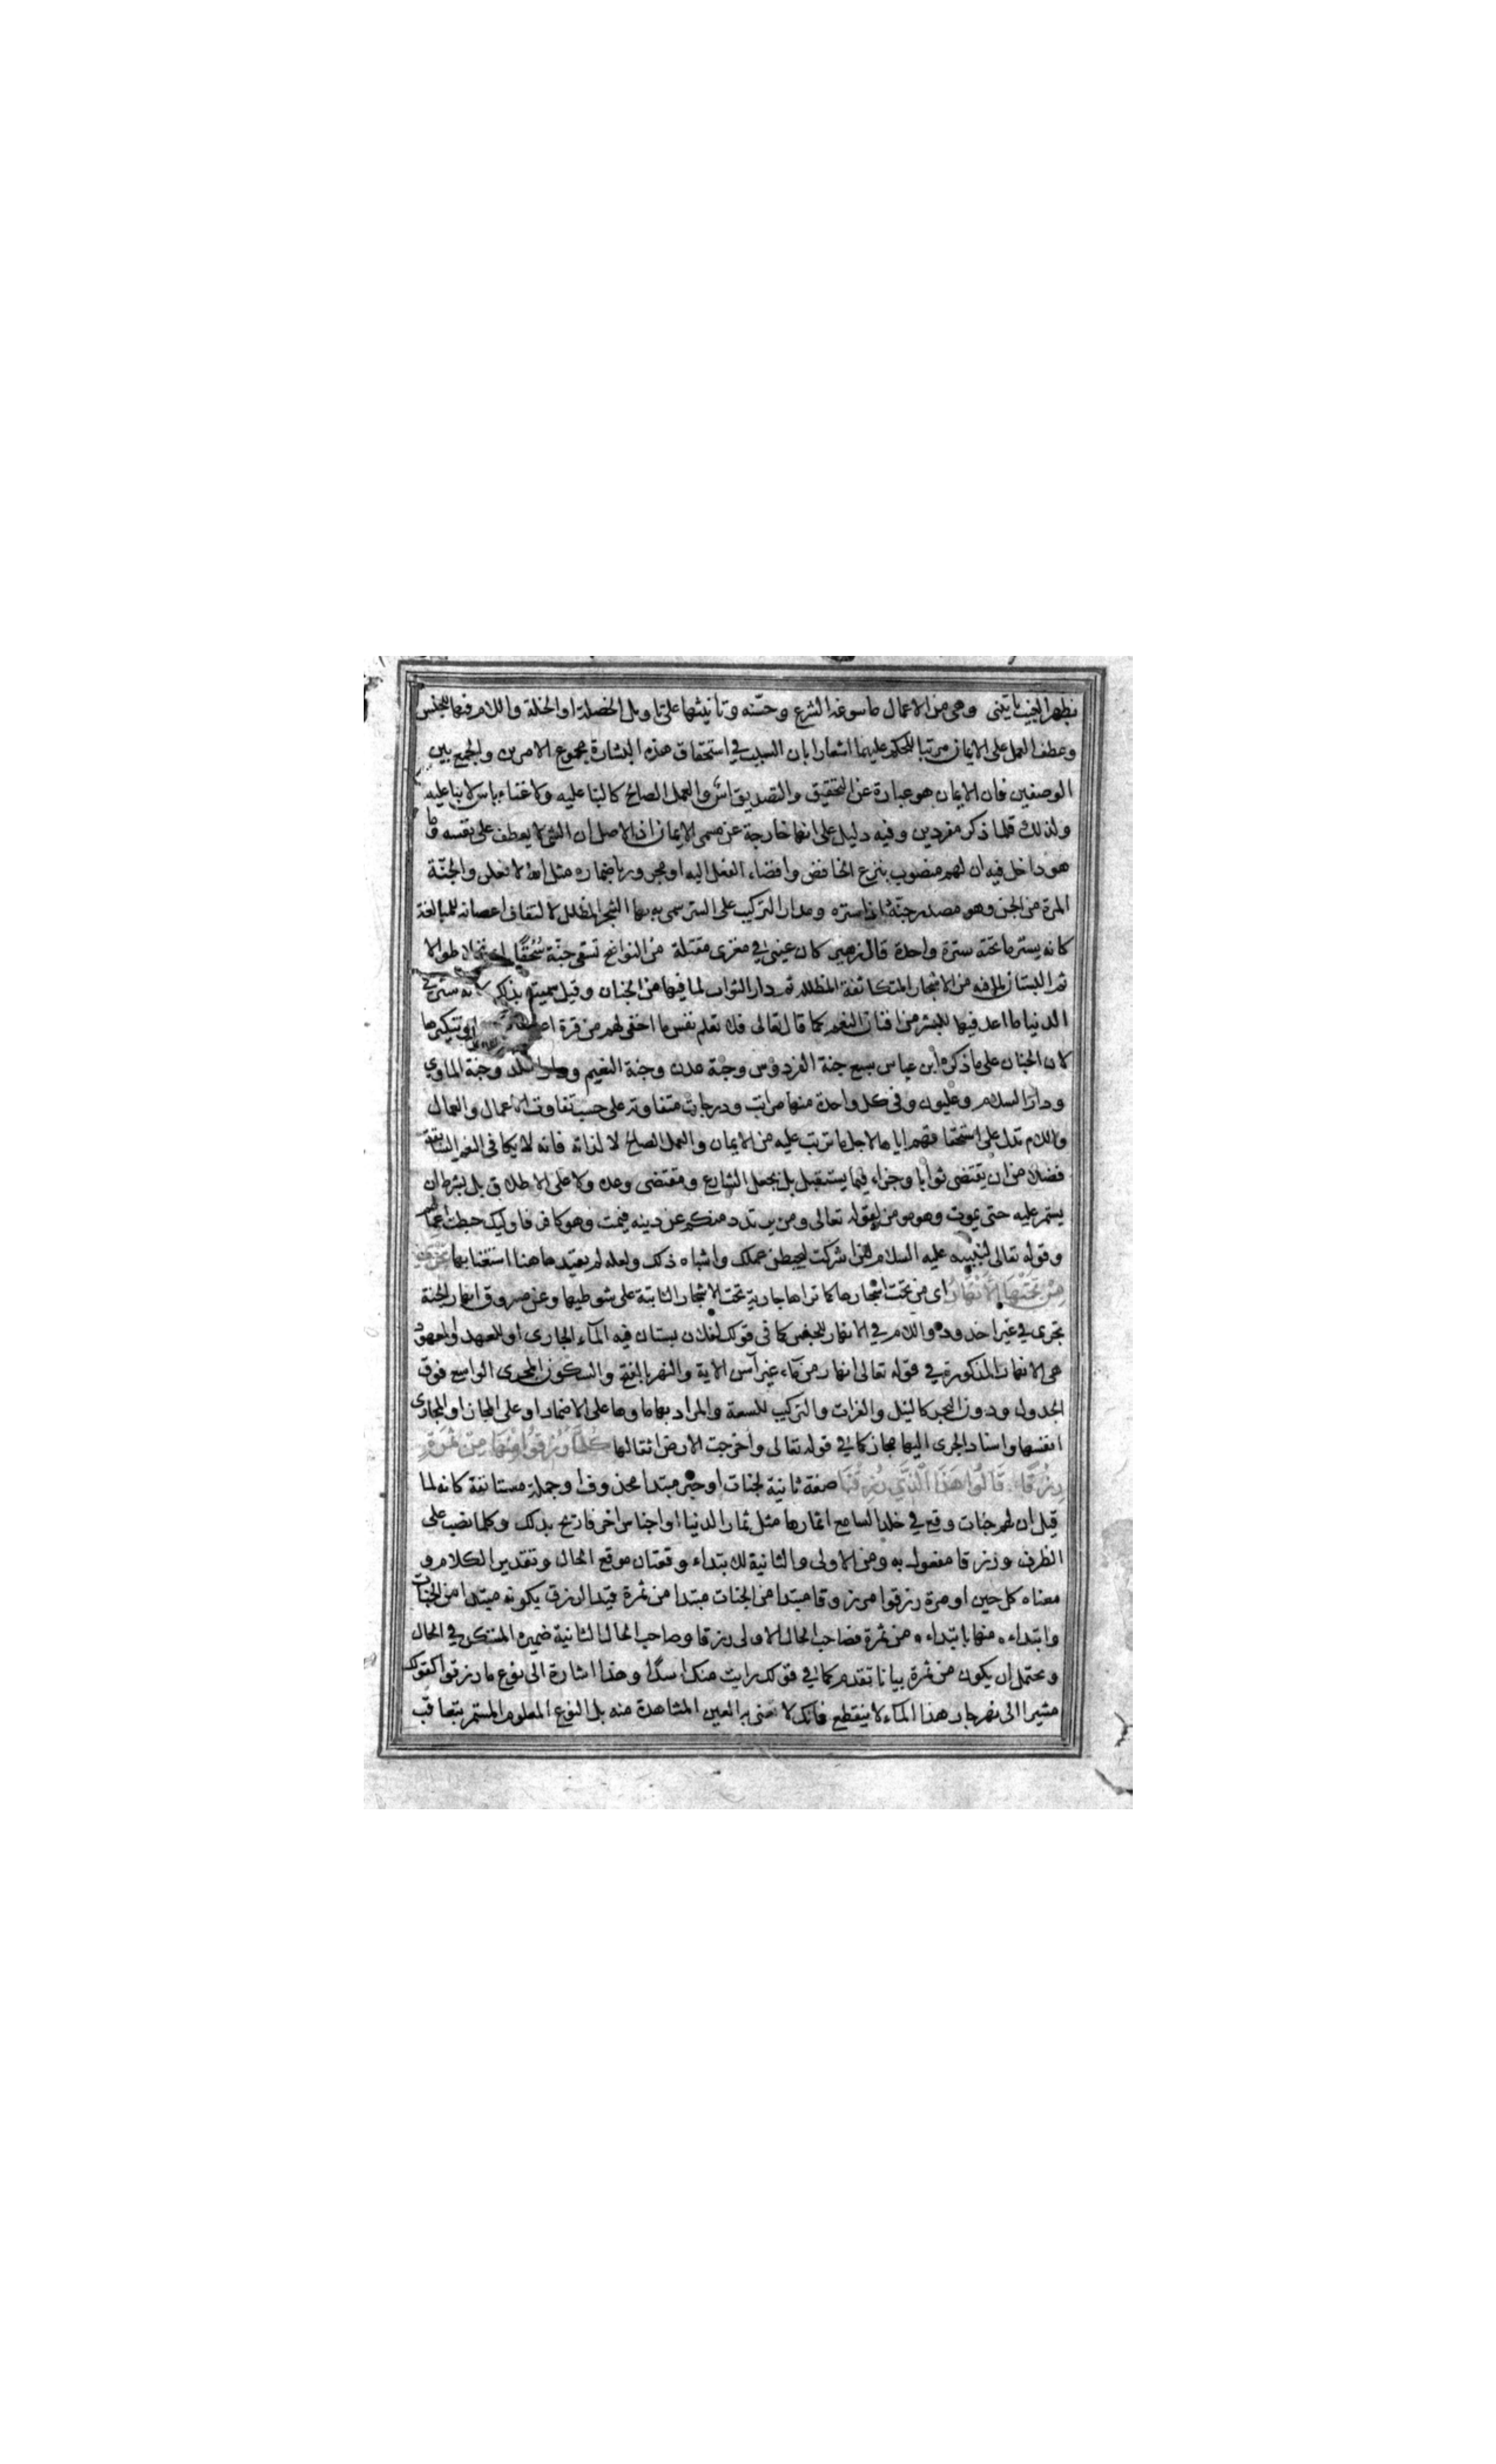 بظهر الغيب تأتيني وهي من الاعمال ما سوغه الشرع وحسّنه وتانيثها على تاويل الخصلة او الخلة واللام فيها للجنس
وعطف العمل على الايمان مرتبا للحكم عليهما اشعارا بان السبب في استحقاق هذه البشارة مجموع الامرين والجمع بين
الوصفين فان الايمان هو عبارة عن التحقيق والتصديق اس والعمل الصالح كالبنا عليه ولا غناء باس لا بنا عليه
ولذلك قلما ذكر مفردين وفيه دليل على انها خارجة عن مسمى الايمان اذ الاصل ان الشئ لا يعطف على نفسه وما
هو داخل فيه ان لهم منصوب بنزع الخافض وافضاء الفعل اليه او مجرور باضماره مثل الله لافعلن والجنّة
المرة من الجن وهو مصدر جنّه اذا ستره ومدار التركيب على الستر سمى به بها الشجر المظلل لالتفاف اغصانه للمبالغة
كانه يستر ما تحته سترة واحدة قال زهير كان عيني في غربى مقتلة من النواضح تسقى جنّة سُحُقًا اى نخلا طوالا
ثم البستان لما فيه من الاشجار المتكاثفة المظللة ثم دار الثواب لما فيها من الجنان وقيل سميت بذلك لانه ستر في
الدنيا ما اعد فيها للبشر من افنان النعم كما قال تعالى فلا تعلم نفس ما اخفى لهم من قرة اعين وتنكيرها
لان الجنان على ما ذكره ابن عباس سبع جنة الفردوس وجنة عدن وجنة النعيم ودار الخلد وجنة الماوي
ودار السلام وعليون وفى كل واحدة منها مراتب ودرجات متفاوتة على حسب تفاوت الاعمال والعمال
واللام تدل على استحقاقهم اياها لاجل ما ترتب عليه من الايمان والعمل الصالح لا لذاته فانه لا يكافى النعم السابقة
فضلا من ان يقتضى ثوابا وجزاء فيما يستقبل بل بجعل الشارع ومقتضى وعده ولا على الاطلاق بل بشرط ان
يستمر عليه حتى يموت وهو مومن لقوله تعالى ومن يرتدد منكم عن دينه فيمت وهو كافر فاوليك حبطت اعمالهم
وقوله تعالى لنبيه عليه السلام لئن اشركت ليحبطن عملك واشباه ذلك ولعله لم يقيد هاهنا استغنا بها تَجْرِي
مِنْ تَحْتِهَا الْأَنْهَارُ اى من تحت اشجارها كما تراها جارية تحت الاشجار النابتة على شوطيها وعن مسروق انهار الجنة
تجرى في غير اخدود واللام في الانهار للجنس كما في قولك لفلان بستان فيه المآء الجارى او للعهد والمعهود
هى الانهار المذكورة في قوله تعالى انهار من مآء غير آسن الاية والنهر بالفتح والسكون المجرى الواسع فوق
الجدول ودون البحر كالنيل والفرات والتركيب للسعة والمراد بها ماوها على الاضمار او على المجاز او المجارى
انفسها واسناد الجرى اليها مجاز كما في قوله تعالى واخرجت الارض اثقالها كُلَّمَا رُزِقُوا مِنْهَا مِنْ ثَمَرَةٍ
رِزْقًا قَالُوا هَذَا الَّذِي رُزِقْنَا صفة ثانية لجنات او خبر مبتدا محذوف او جملة مستانفة كانه لما
قيل ان لهم جنات وقع في خلد السامع اثمارها مثل ثمار الدنيا او اجناس اخر فازيح بذلك وكلما نصب على
الظرف ورزقا مفعول به ومن الاولى والثانية للابتداء وقعتان موقع الحال وتقدير الكلام و
معناه كل حين او مرة رزقوا مرزوقا مبتدا من الجنات مبتدا من ثمرة قيد الرزق بكونه مبتدا من الجنات
وابتداءه منها بابتداءه من ثمرة فصاحب الحال الاولى رزقا وصاحب الحال الثانية ضميره المستكن في الحال
ويحتمل ان يكون من ثمرة بيانا تقدم كما في قولك رايت منك اسدًا وهذا اشارة الى نوع ما رزقوا كقولك
مشيرا الى نهر جار هذا المآء لا ينقطع فانك لا تعنى به العين المشاهدة منه بل النوع المعلوم المستمر بتعاقب